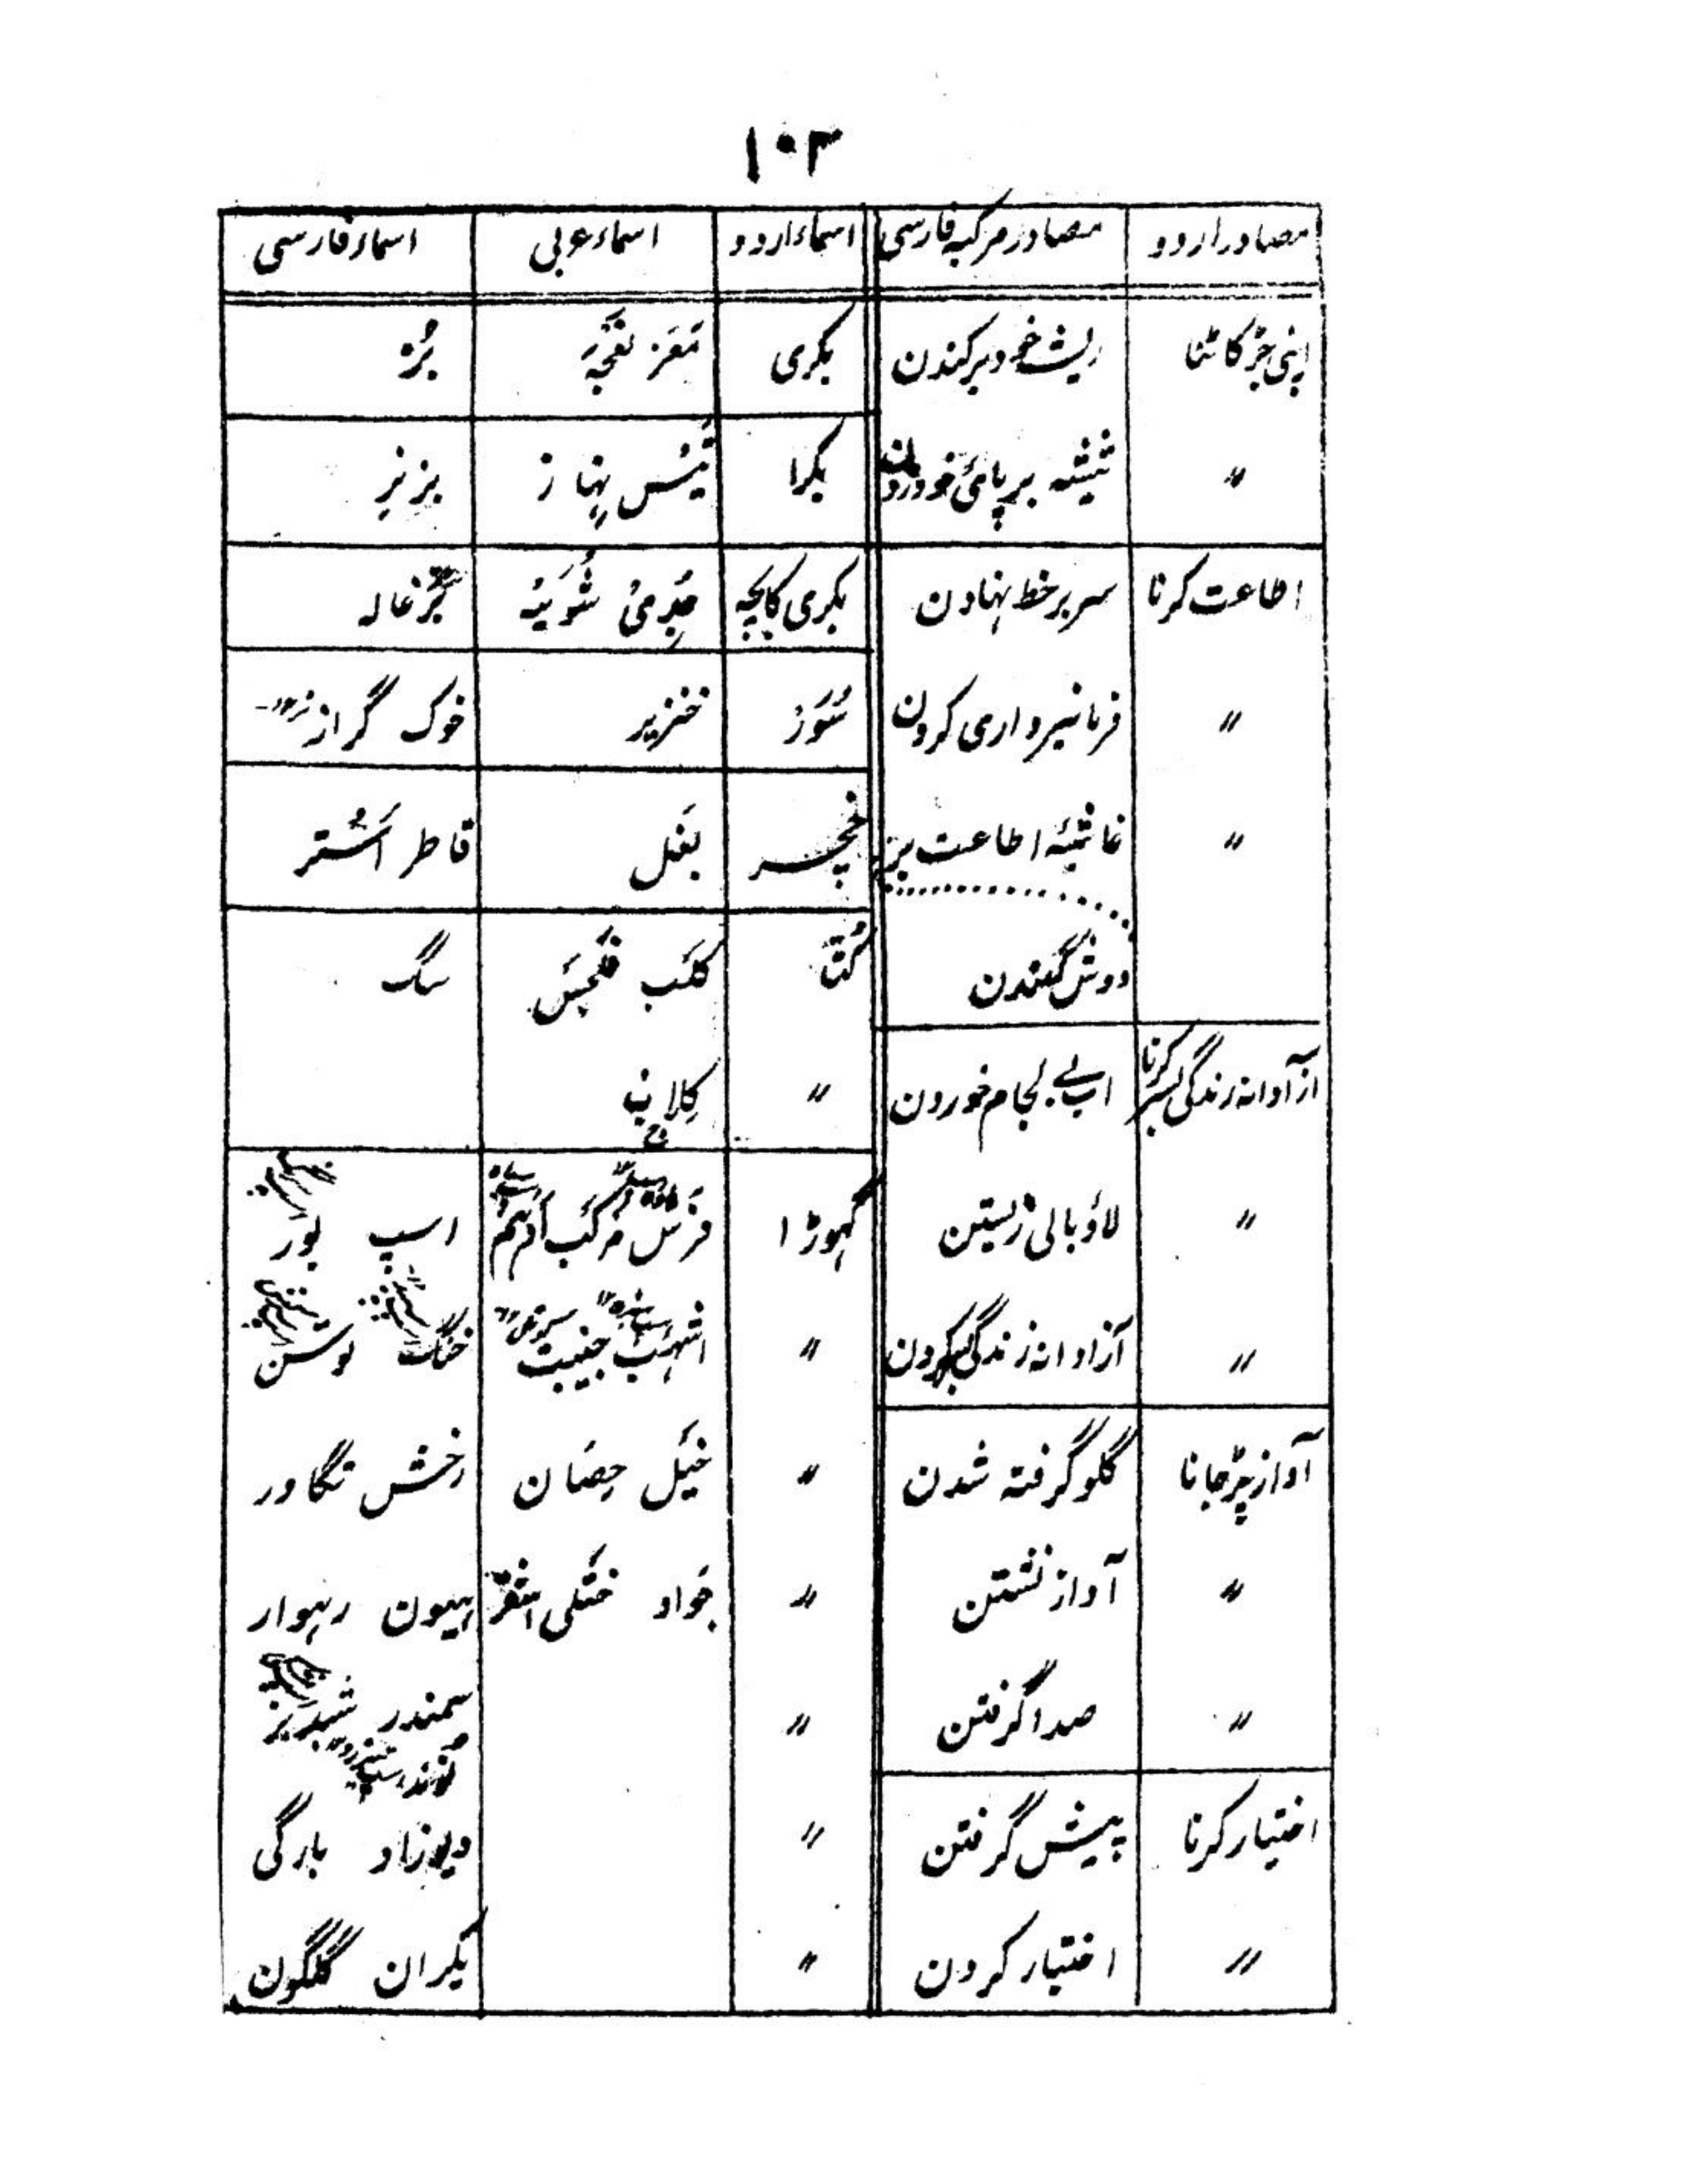 ۱۰۳
مصادر اردو | مصادر مرکبہ فارسی | اسماء اردو | اسماء عربی | اسماء فارسی
اپنی جڑ کاٹنا | ریشۂ خود برکندن | بکری | مَعَز نَعْجَہ | بُز
〃 | تیشہ بر پائ خود زدن | بکرا | تَیْس نہاز | بز نر
اطاعت کرنا | سر بر خط نہادن | بکری کا بچہ | جَدِیْ شُوَیْہ | بُزغالہ
〃 | فرمانبرداری کردن | سُوَر | خنزیر | خوک گراز
〃 | غاشیۂ اطاعت بر | خچر | بَغَل | قاطر اَسْتر
دوش فگندن | کُتّا | کَلَب | سگ
آزادانہ زندگی بسر کرنا | اسپ بے لجام خوردن | 〃 | کِلاب ج
〃 | لاؤبالی زیستن | گہوڑا | فَرَس مَرکَب اَدْہَم | اسپ بُور
〃 | آزادانہ زندگی کردن | 〃 | اشہَب جنیبت | خنگ توسن
آواز پڑ جانا | گلو گرفتہ شدن | 〃 | خَیَل حِصَان | رخش تگاور
〃 | آواز نشستن | 〃 | جَواد خَتَلی اشقر | ہیون رہوار
〃 | صدا گرفتن | 〃 | سمندر شبدیز
اختیار کرنا | پیش گرفتن | 〃 | دیوزاد بارگی
〃 | اختیار کردن | 〃 | یکران گلگون